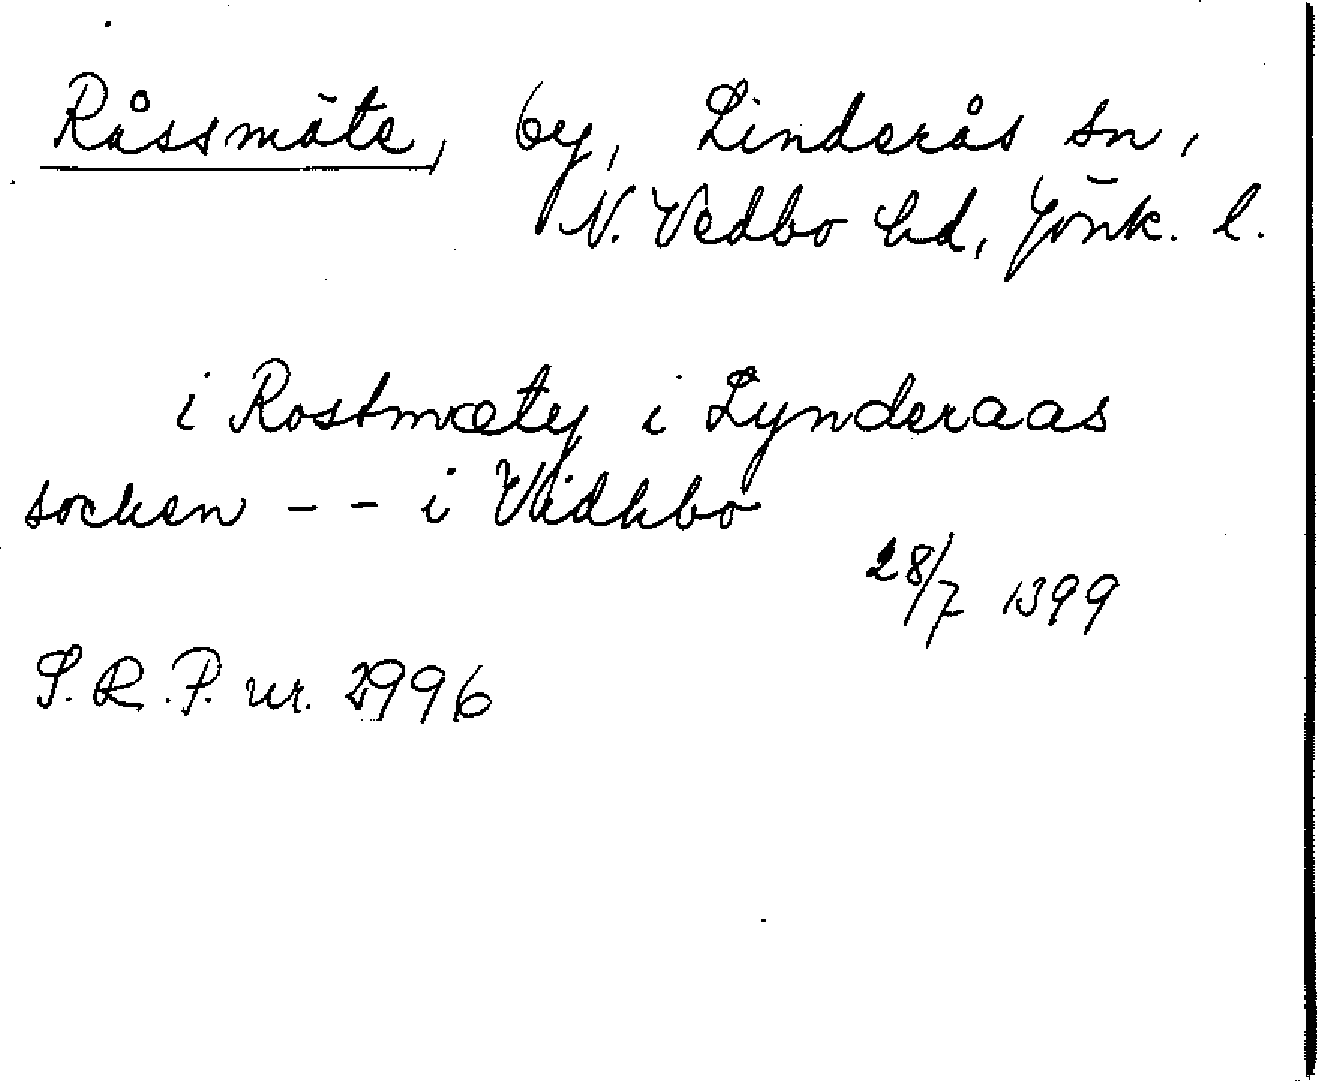 Råssmäte, by, Linderås sn,
N. Vedbo hd, Jönk. l.
i Rostmæty i Lynderaas
socken - - i Vidhbo
28/7 1399
S.R.P. nr. 2996